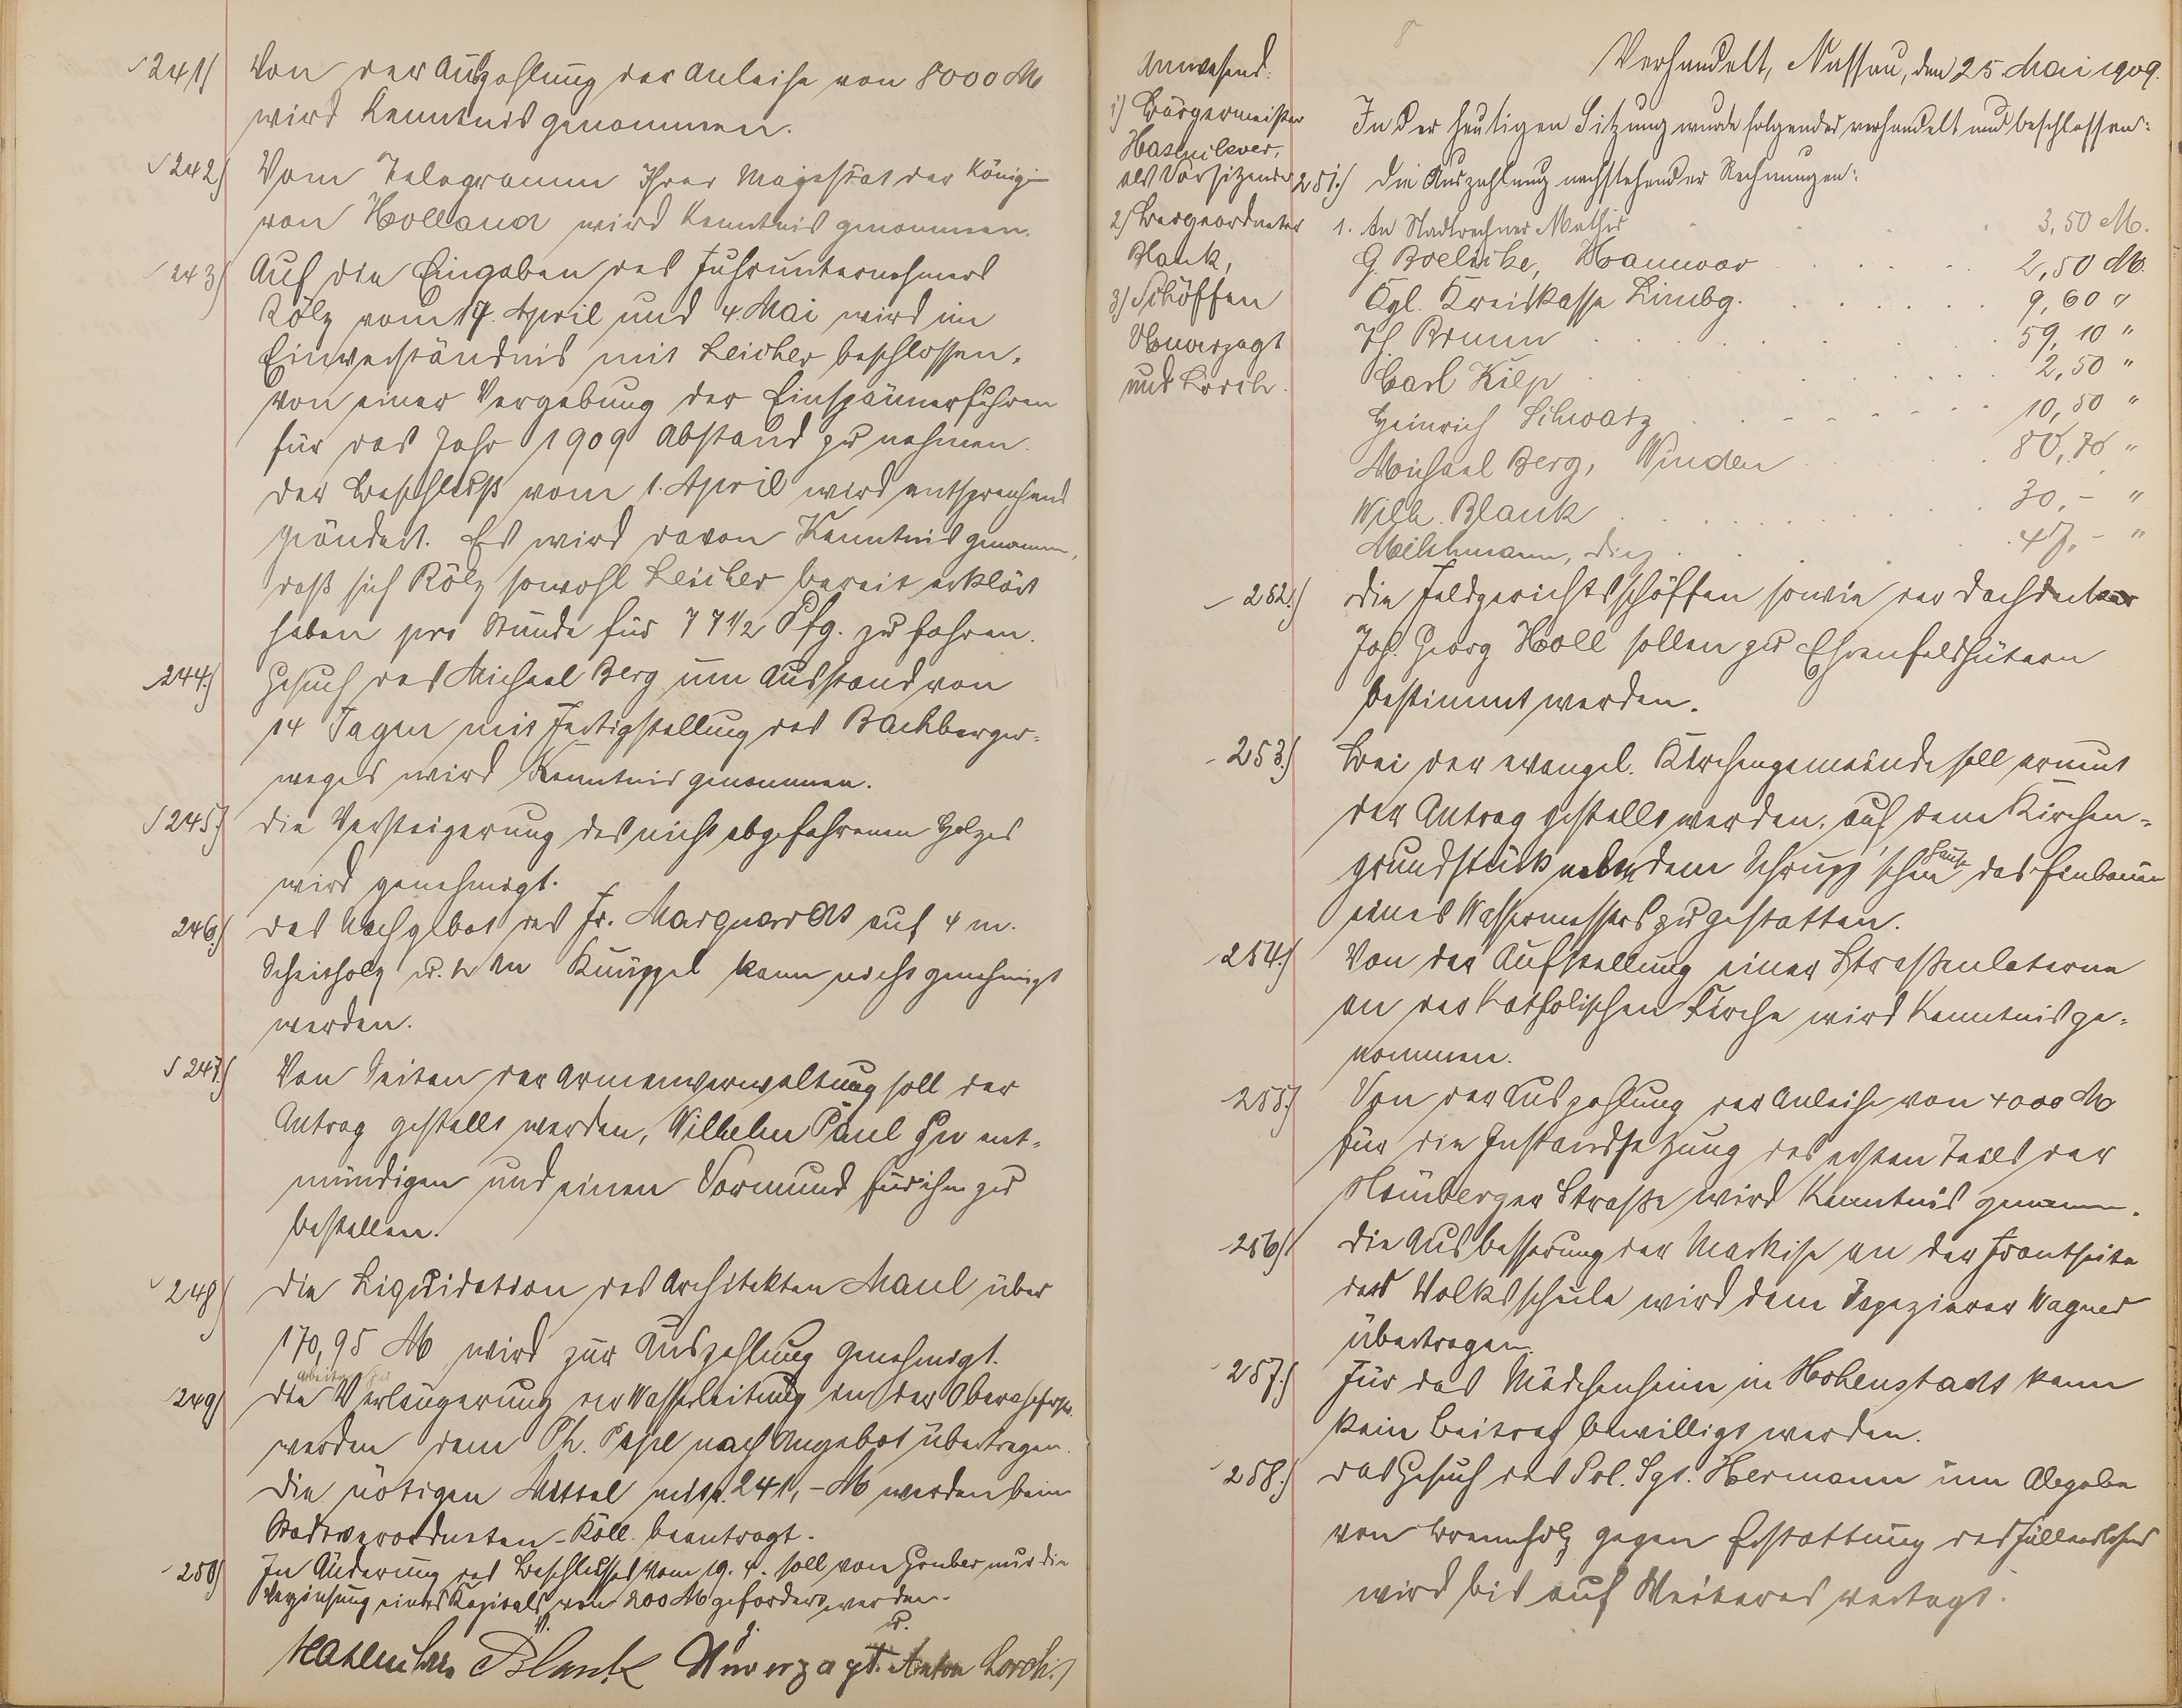 241) Von der Auszahlung der Anleihe von 8000 M
wird Kenntnis genommen.
242) Vom Telegramm Ihrer Majestät der Königin
von Holland wird Kenntnis genommen.
243) Auf die Eingaben des Fuhrunternehmers
Rölz vom 17. April und 4. Mai wird im
Einverständnis mit Leicher beschlossen,
von einer Vergebung der Einspännerfuhren
für das Jahr 1909 Abstand zu nehmen.
Der Beschluß vom 1. April wird entsprechend
geändert. Es wird davon Kenntnis genommen,
daß sich Rölz sowohl Leicher bereit erklärt
haben pro Stunde für 77 1/2 Pfg. zu fahren.
244.) Gesuch des Michael Berg um Ausstand von
14 Tagen mit Fertigstellung des Bachberger-
weges wird Kenntnis genommen.
245.) Die Versteigerung des nicht abgefahrenen Holzes
wird genehmigt.
246.) Das Nachgebot des Fr. Marquardt auf 4 m.
Scheitholz u. 2 m Knüppel kann nicht genehmigt
werden.
247.) Von Seiten der Armenverwaltung soll der
Antrag gestellt werden, Wilhelm Paul zu ent-
mündigen und einen Vormund für ihn zu
bestellen.
248) Die Liquidation des Architekten Maul über
170,95 M wird zur Auszahlung genehmigt.
Arbeiten für
249) Die Verlängerung der Wasserleitung in der Obernhoferstr.
werden dem Ph. Pape nach Angebot übertragen.
Die nötigen Mittel mit 241,- M werden beim
Stadtverordneten-Koll. beantragt.
250) In Änderung des Beschlusses vom 19. 4. soll von Gruber nur die
Verzinsung eines Kapitals von 200 M gefordert werden.
v. g. u.
Hasenclever Blank Unverzagt. Anton Lorch.
Anwesend:
1) Bürgermeister
Hasenclever,
als Vorsitzender
2) Beigeordneter
Blank,
3) Schöffen
Unverzagt
und Lorch.
Verhandelt, Nassau, den 25. Mai 1909.
In der heutigen Sitzung wurde folgendes verhandelt und beschlossen:
251.) Die Auszahlung nachstehender Rechnungen:
1. An Stadtrechner Mathis 3,50 M.
G. Boelicke, Hannover 2,50 M.
Kgl. Kreiskasse Limbg. 9,60 "
H Brunn 59,10 "
Carl Kilp 2,50 "
Heinrich Schwarz 10,50 "
Michael Berg, Winden 80,70 "
Wilh. Blank 30,- "
Meckmann, Diez 47,- "
252.) Die Feldgerichtsschöffen sowie der Dachdecker
Joh. Georg Holl sollen zu Ehrenfeldhütern
bestimmt werden.
253.) Bei der evangel. Kirchengemeinde soll erneut
der Antrag gestellt werden, auf dem Kirchen-
grundstück neben dem Schrupp'schen Hause das Einbauen
eines Wassermessers zu gestatten.
254.) Von der Aufstellung einer Straßenlaterne
an der Katholischen Kirche wird Kenntnis ge-
nommen.
255.) Von der Auszahlung der Anleihe von 4000 M
für die Instandsetzung des ersten Teils der
Hömberger Straße wird Kenntnis genommen.
256) Die Ausbesserung der Markise an der Frontseite
der Volksschule wird dem Tapezierer Wagner
übertragen.
257.) Für das Mädchenheim in Hohenstadt kann
kein Beitrag bewilligt werden.
258.) Das Gesuch des Pol. Sgt. Hermann um Abgabe
von Brennholz gegen Erstattung des Fällerlohnes
wird bis auf Weiteres vertagt.